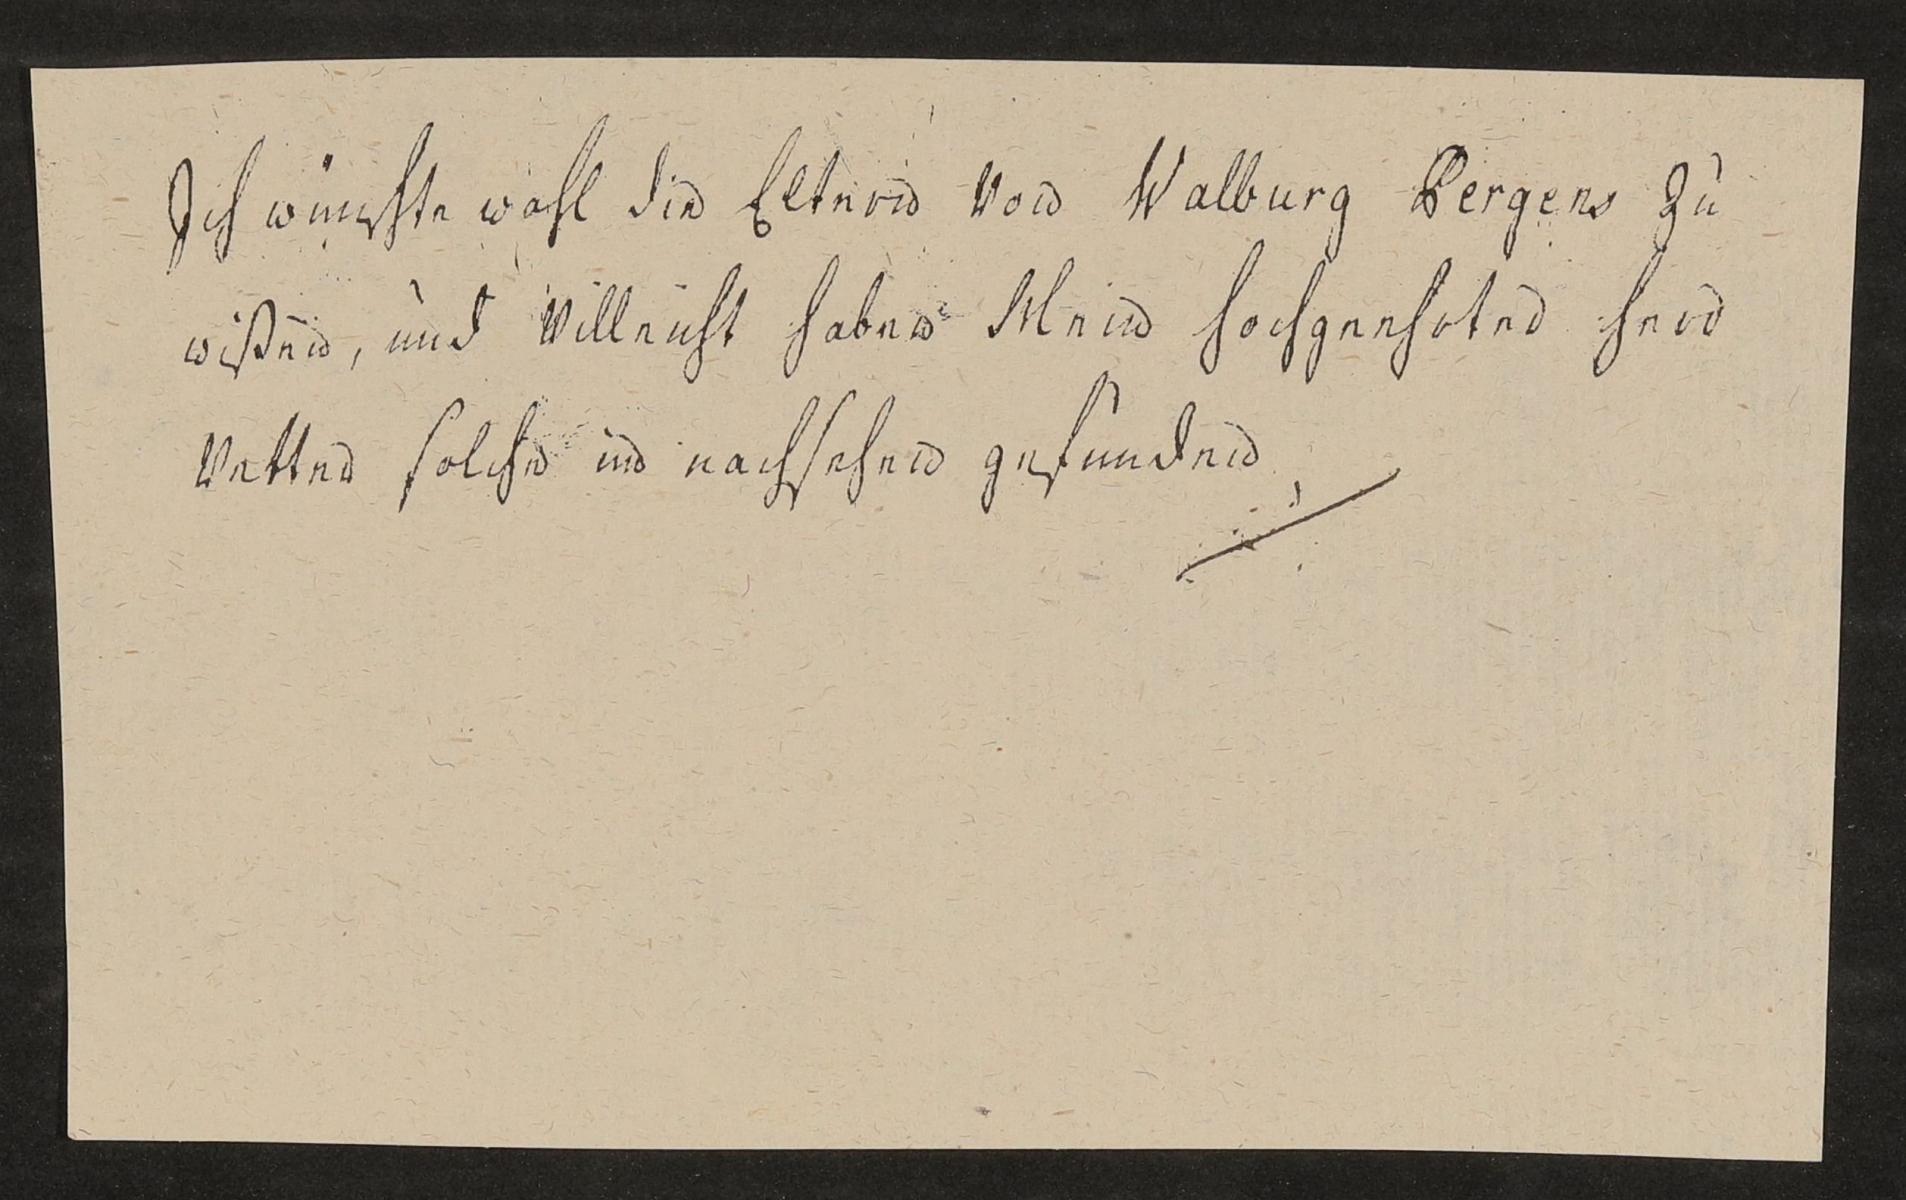 Ich wünschte wohl die Eltern von Walburg Bergens zu
wißen, und Villeicht haben Mein hochgeehrter herr
Vetter solche im nachsehen gefunden